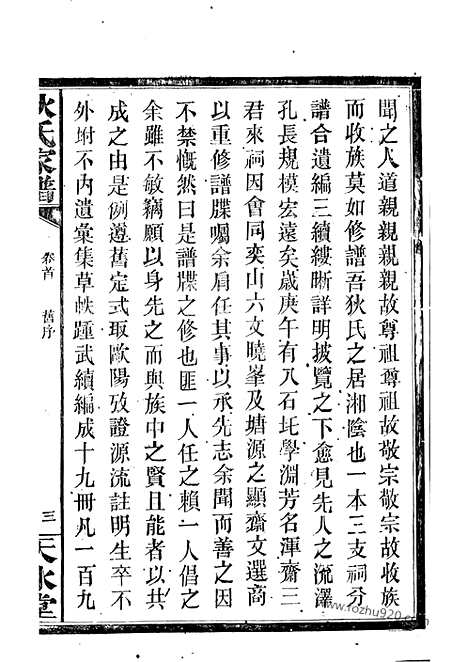 聞之人道親親親親故尊祖尊祖故敬宗敬宗故收族
而收族莫如修譜吾狄氏之居湘陰也一本三支祠分
譜合遺編三續縷晰詳明披覽之下愈見先人之流澤
孔長規模宏遠矣歲庚午有八石圫學淵芳名渾齋三
君來祠因會同奕山六文曉峯及塘源之顯齋文選商
以重修譜牒囑余肩任其事以承先志余聞而善之因
不禁慨然曰譜牒之修也匪一人任之賴一人倡之
余雖不敏竊願以身先之而與族中之賢且能者以共
成之由是例遵舊定式取歐陽攷證源流註明生卒不
外坿不內遺彙集草帙踵武續編成十九冊凡一百九
狄氏家譜
卷首 舊序
三
天水堂
www.fozhu920.com